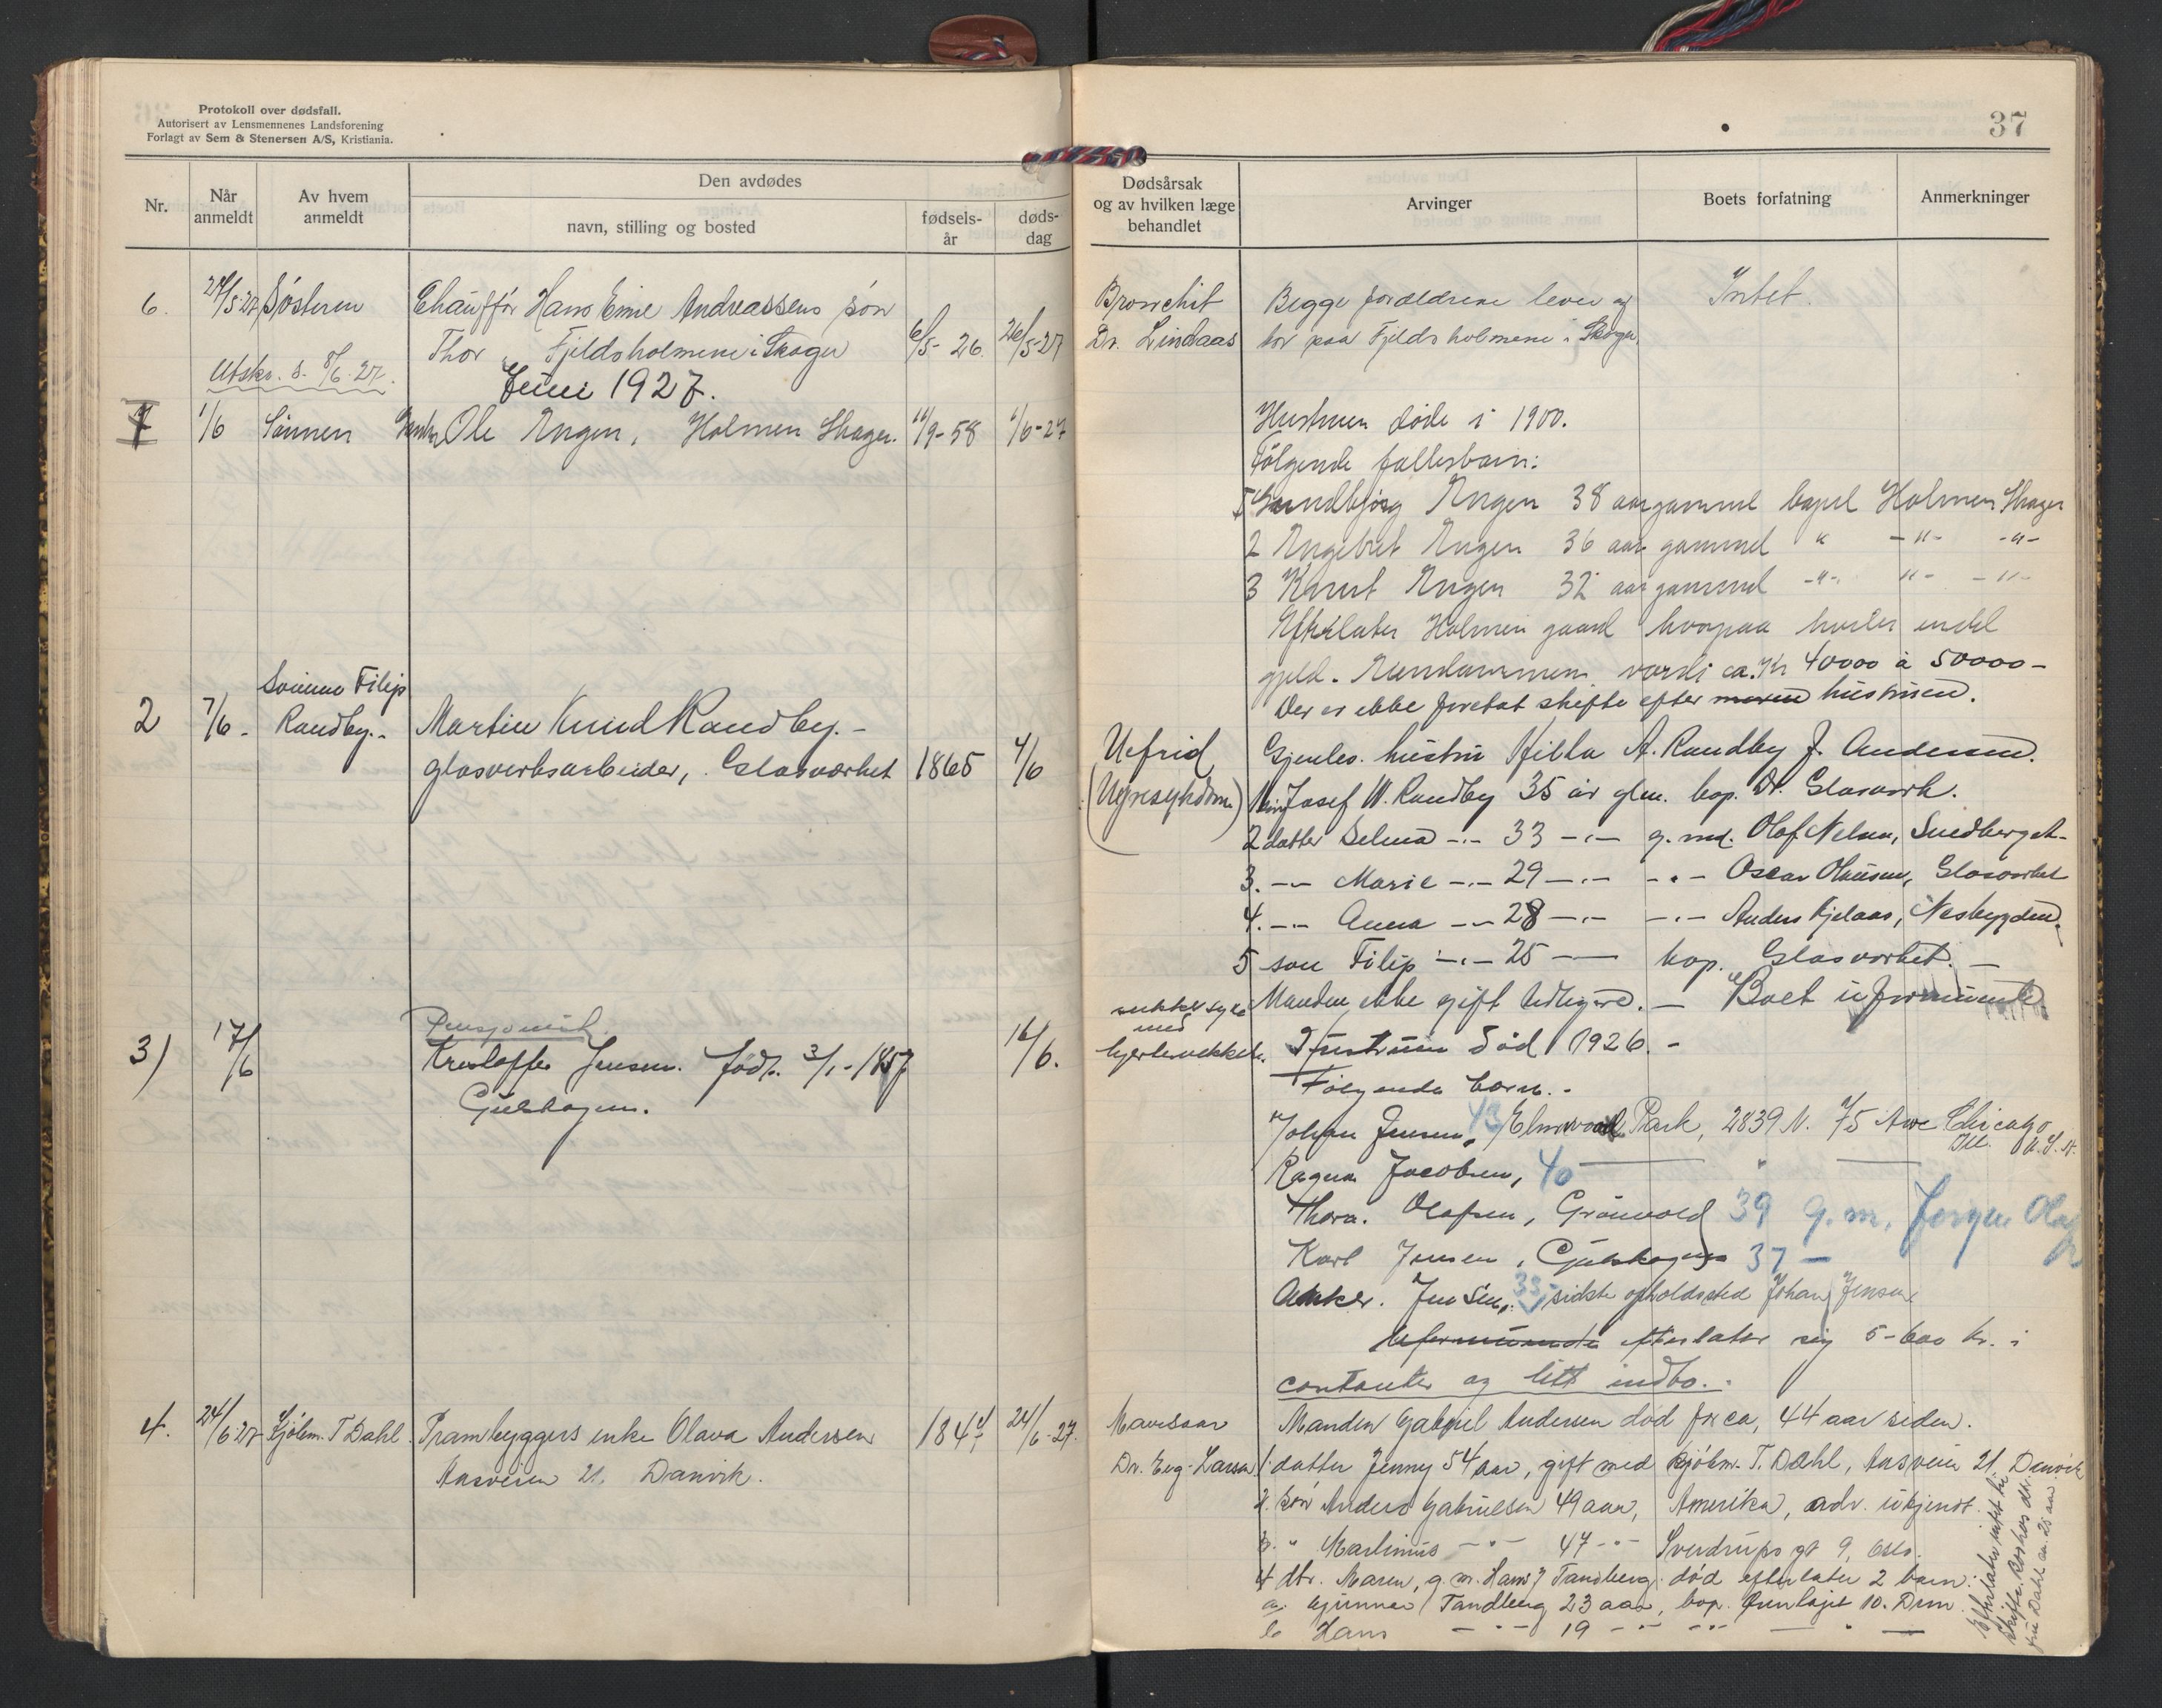 Protokoll over dødsfall.
Autorisert av Lensmennenes Landsforening
Forlagt av Sem & Stenersen A/S, Kristiania.
37
Nr.
Når anmeldt
Av hvem anmeldt
Den avdødes
navn, stilling og bosted
fødsels-år
døds-dag
Dødsårsak og av hvilken læge behandlet
Arvinger
Boets forfatning
Anmerkninger
6. 27/5-27 Søsteren Chauffør Hans Emil Andreassens søn
Thor, Fjeldsholmene i Skoger 6/5-26. 26/5-27
Utskr. s. 8/6-27.
Bronchit
Dr. Lindaas
Begge forældrene lever og
bor paa Fjeldsholmene i Skoger
Intet.
Juni 1927.
1 1/6 Sønnen Ole Engen, Holmen Skoger. 11/9-58 1/6-27
Hustruen døde i 1900.
Følgende fællesbarn:
1 Gundbjørg Engen 38 aar gammel bopel Holmen Skoger
2 Engebret Engen 36 aar gammel " -"- -"-
3 Knut Engen 32 aar gammel -"- "- -"-
Efterlater Holmen gaard hvorpaa hviler endel
gjeld. Eiendommen værdi ca. Kr 40000 à 50000-
Der er ikke foretat skifte efter moren hustruen.
2 7/6- Sønnen Filip
Randby.- Martin Knud Randby.-
glasverksarbeider, Glasværket 1865 4/6
Uefrid
(Nyresykdom)
Gjenlev. hustru Hilda A. Randby f. Andersen.
1 Josef W. Randby 35 år glm. bop. Dr. Glasverk.
2 datter Selma -"- 33 -"- g. md. Olaf Nelsen, Svedberget-
3. -"- Marie -"- 29 -"- -"- Oscar Olausen, Glasverket
4. -"- Anna -"- 28 -"- -"- Anders Kjelaas, Nesbygden.
5 søn Filip -"- 25 -"- bop. Glasværket.-
Manden ikke gift tidligere.- Boet uformuende.
3) 17/6 Pensjonist.
Kristoffer Jensen. født 3/1-1857 16/6.
Gulskogen.
sukkersyke
med
hjertesvekkelse.
Hustruen død 1926.-
Følgende barn.-
Johan Jensen, 43 Elmwood Park, 2839 N. 75 Ave Chicago
Ill. U.S.A.
Ragna Jacobsen, 40 — " —
Thora. Olafsen, Grønvold 39 g.m. Jørgen Olafs
Karl Jensen, Gulskogen 37 —
Anker. Jensen, 33 sidste opholdssted Johan Jensen
Uformuende efterlater sig 5-600 kr. i
contanter og litt indbo.
4. 24/6 27 Kjølm. T Dahl. Prambyggers enke Olava Andersen 1844 24/6-27.
Aasveien 21. Danvik.
Mavesaar
Dr. Eug. Larsen
Manden Gabriel Andersen død for ca, 44 aar siden.
1. datter Jenny 54 aar, gift med Kjølm. T. Dahl, Aasveien 21. Danvik
2. søn Anders Gabrielsen 49 aar, Amerika, adr. ukjendt.
3. " Martinus -"- 47 -"- Sverdrups gt 9, Oslo.
4 dtr. Maren, g. m. Hans J Tandberg. død efterlater 2 barn:
a. Gunnar Tandberg 23 aar, bop. Drm
b Hans -"- 19 -"- -"- — " —
Efterlater intet til
skifte. Bos hos dtr.
fru Dahl ca. 25 aar